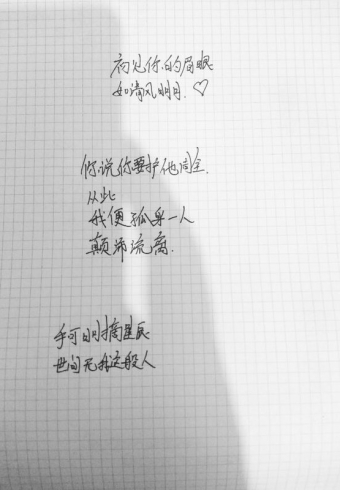 初见你的眉眼
如清风明月.♡
你说你要护他周全.
从此
我便孤身一人
颠沛流离.
手可明摘星辰
世间无我这般人